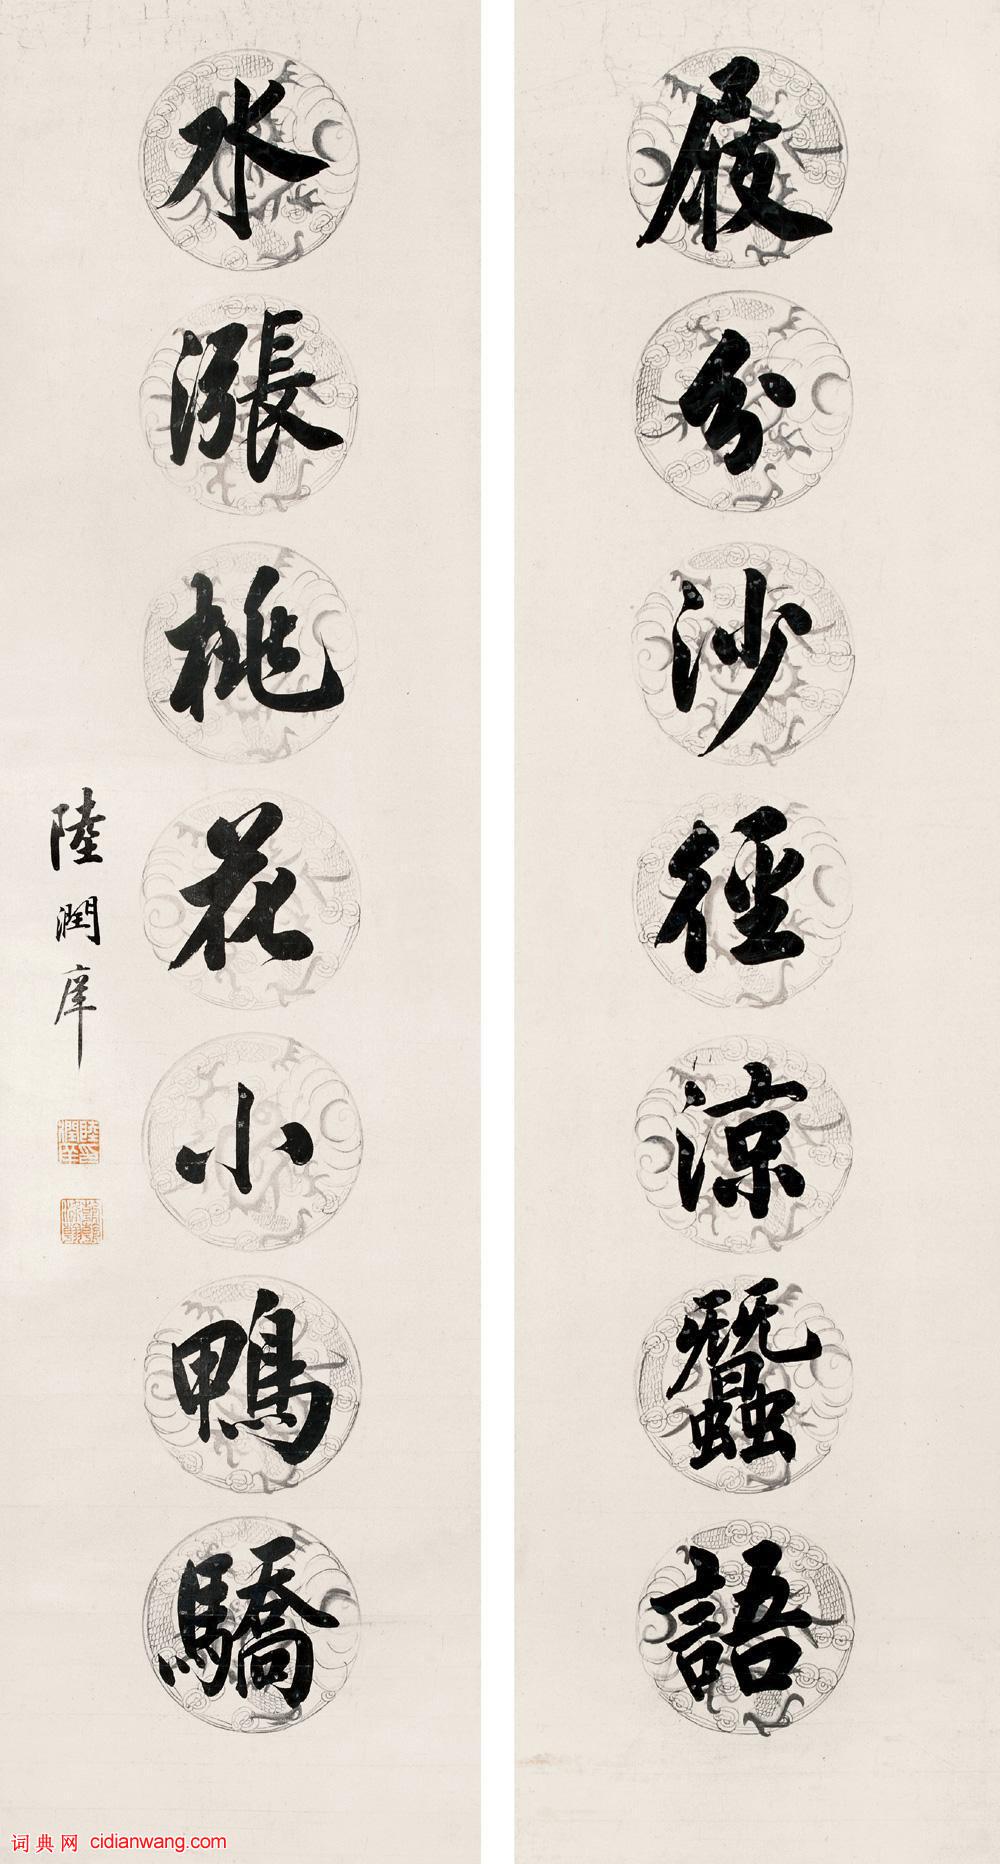 屐分沙徑涼蠶語
水漲桃花小鴨驕
陸潤庠
陸印潤庠
词典网 cidianwang.com